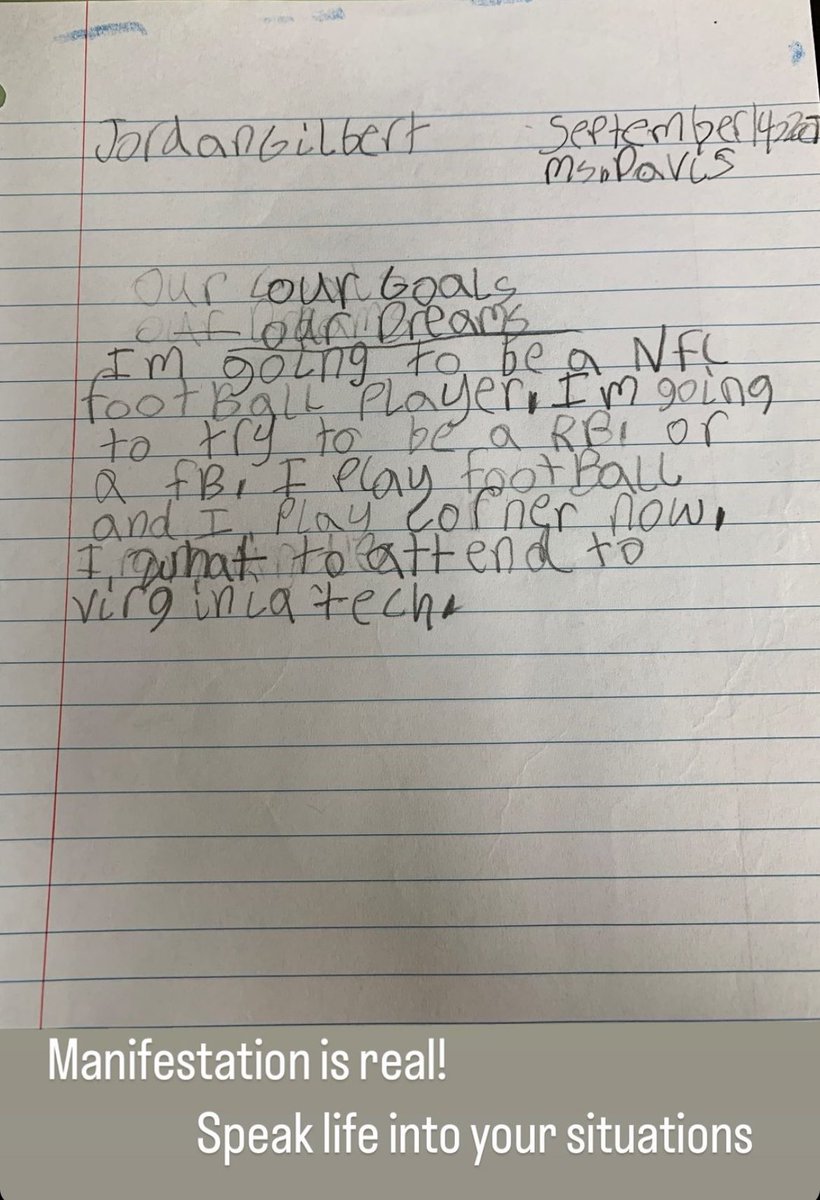 Jordan Gilbert
September 14
Ms. Davis
our our Goals
our Dreams
Im going to be a NFL
footBall Player, Im going
to try to be a RB, or
a fB, I Play footBall
and I Play corner now,
I, what to attend to
virginia tech.
Manifestation is real!
Speak life into your situations